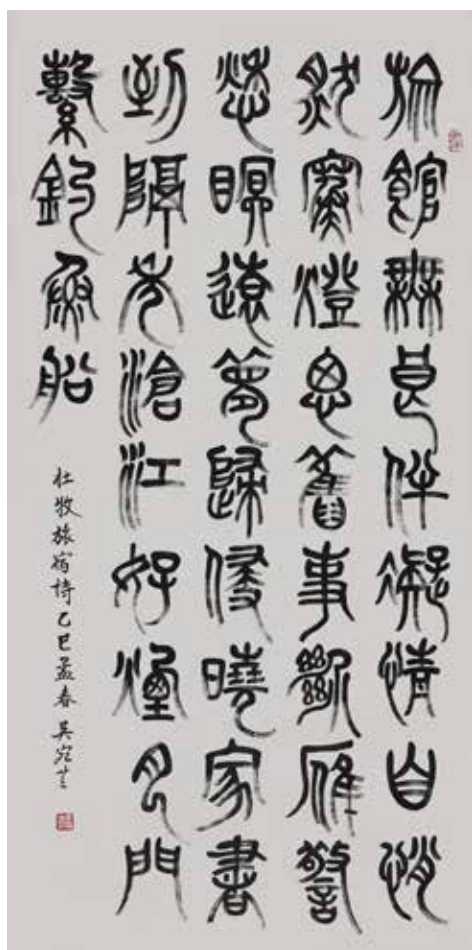 旅館無良伴凝情自悄
然寒燈思舊事斷雁警
愁瞑遠夢歸侵曉家書
到隔年滄江好煙月門
繫釣魚船
杜牧旅宿詩乙巳孟春 吳宛芝